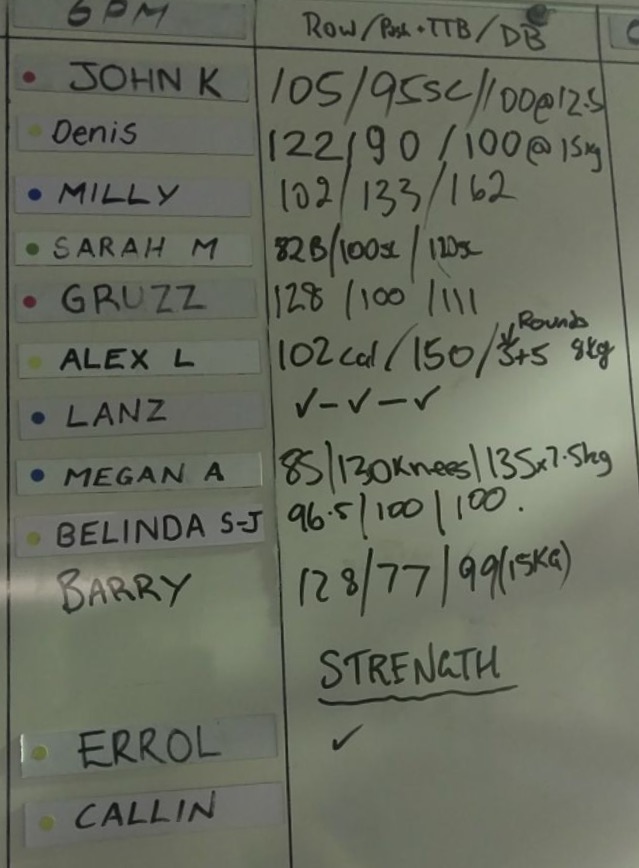 6PM Row/Push+TTB/DB
JOHN K 105/95sc/100@12.5
Denis 122/90/100@15kg
MILLY 102/133/162
SARAH M 82B/100sc/120sc
GRUZZ 128/100/111
Rounds
ALEX L 102cal/150/5+5 8kg
LANZ ✓-✓-✓
MEGAN A 85/130Knees/135x7.5kg
BELINDA S-J 96.5/100/100.
BARRY 128/77/99(15KG)
STRENGTH
ERROL ✓
CALLIN